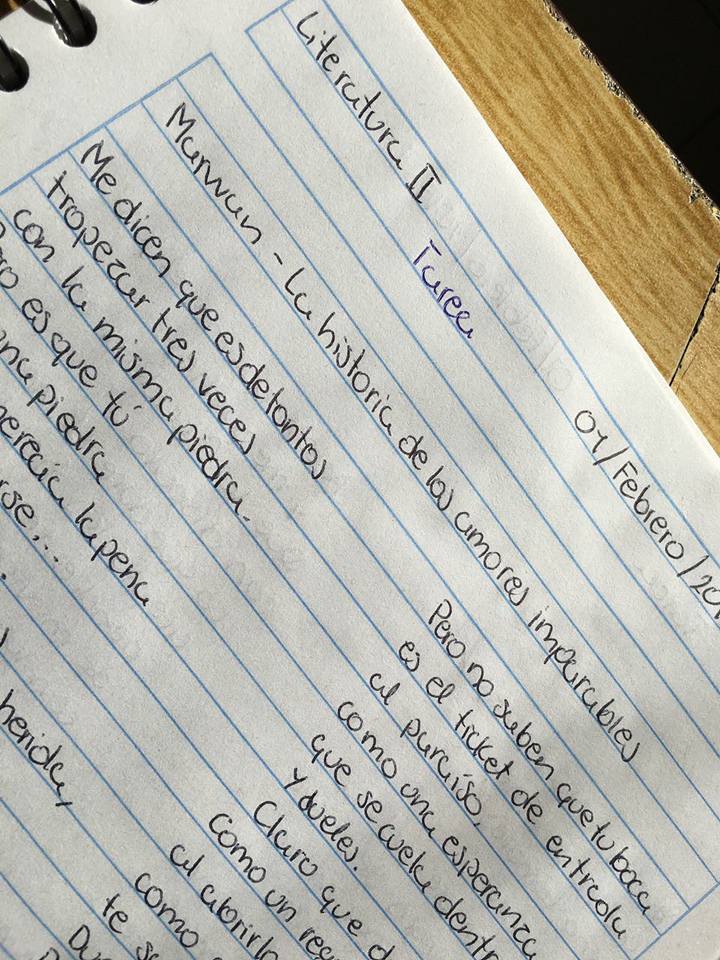 Literatura II
Tarea
04/Febrero/201
Marwan - La historia de los amores imparables
Me dicen que es de tontos
tropezar tres veces
con la misma piedra.
ero es que tú
una piedra
merecía la pena
rse...
herida,
Pero no saben que tu boca
es el ticket de entrada
al paraíso,
como una esperanza
que se cuela dentr
y dueles.
Claro que d
como un reg
al abrirlo
como
te se